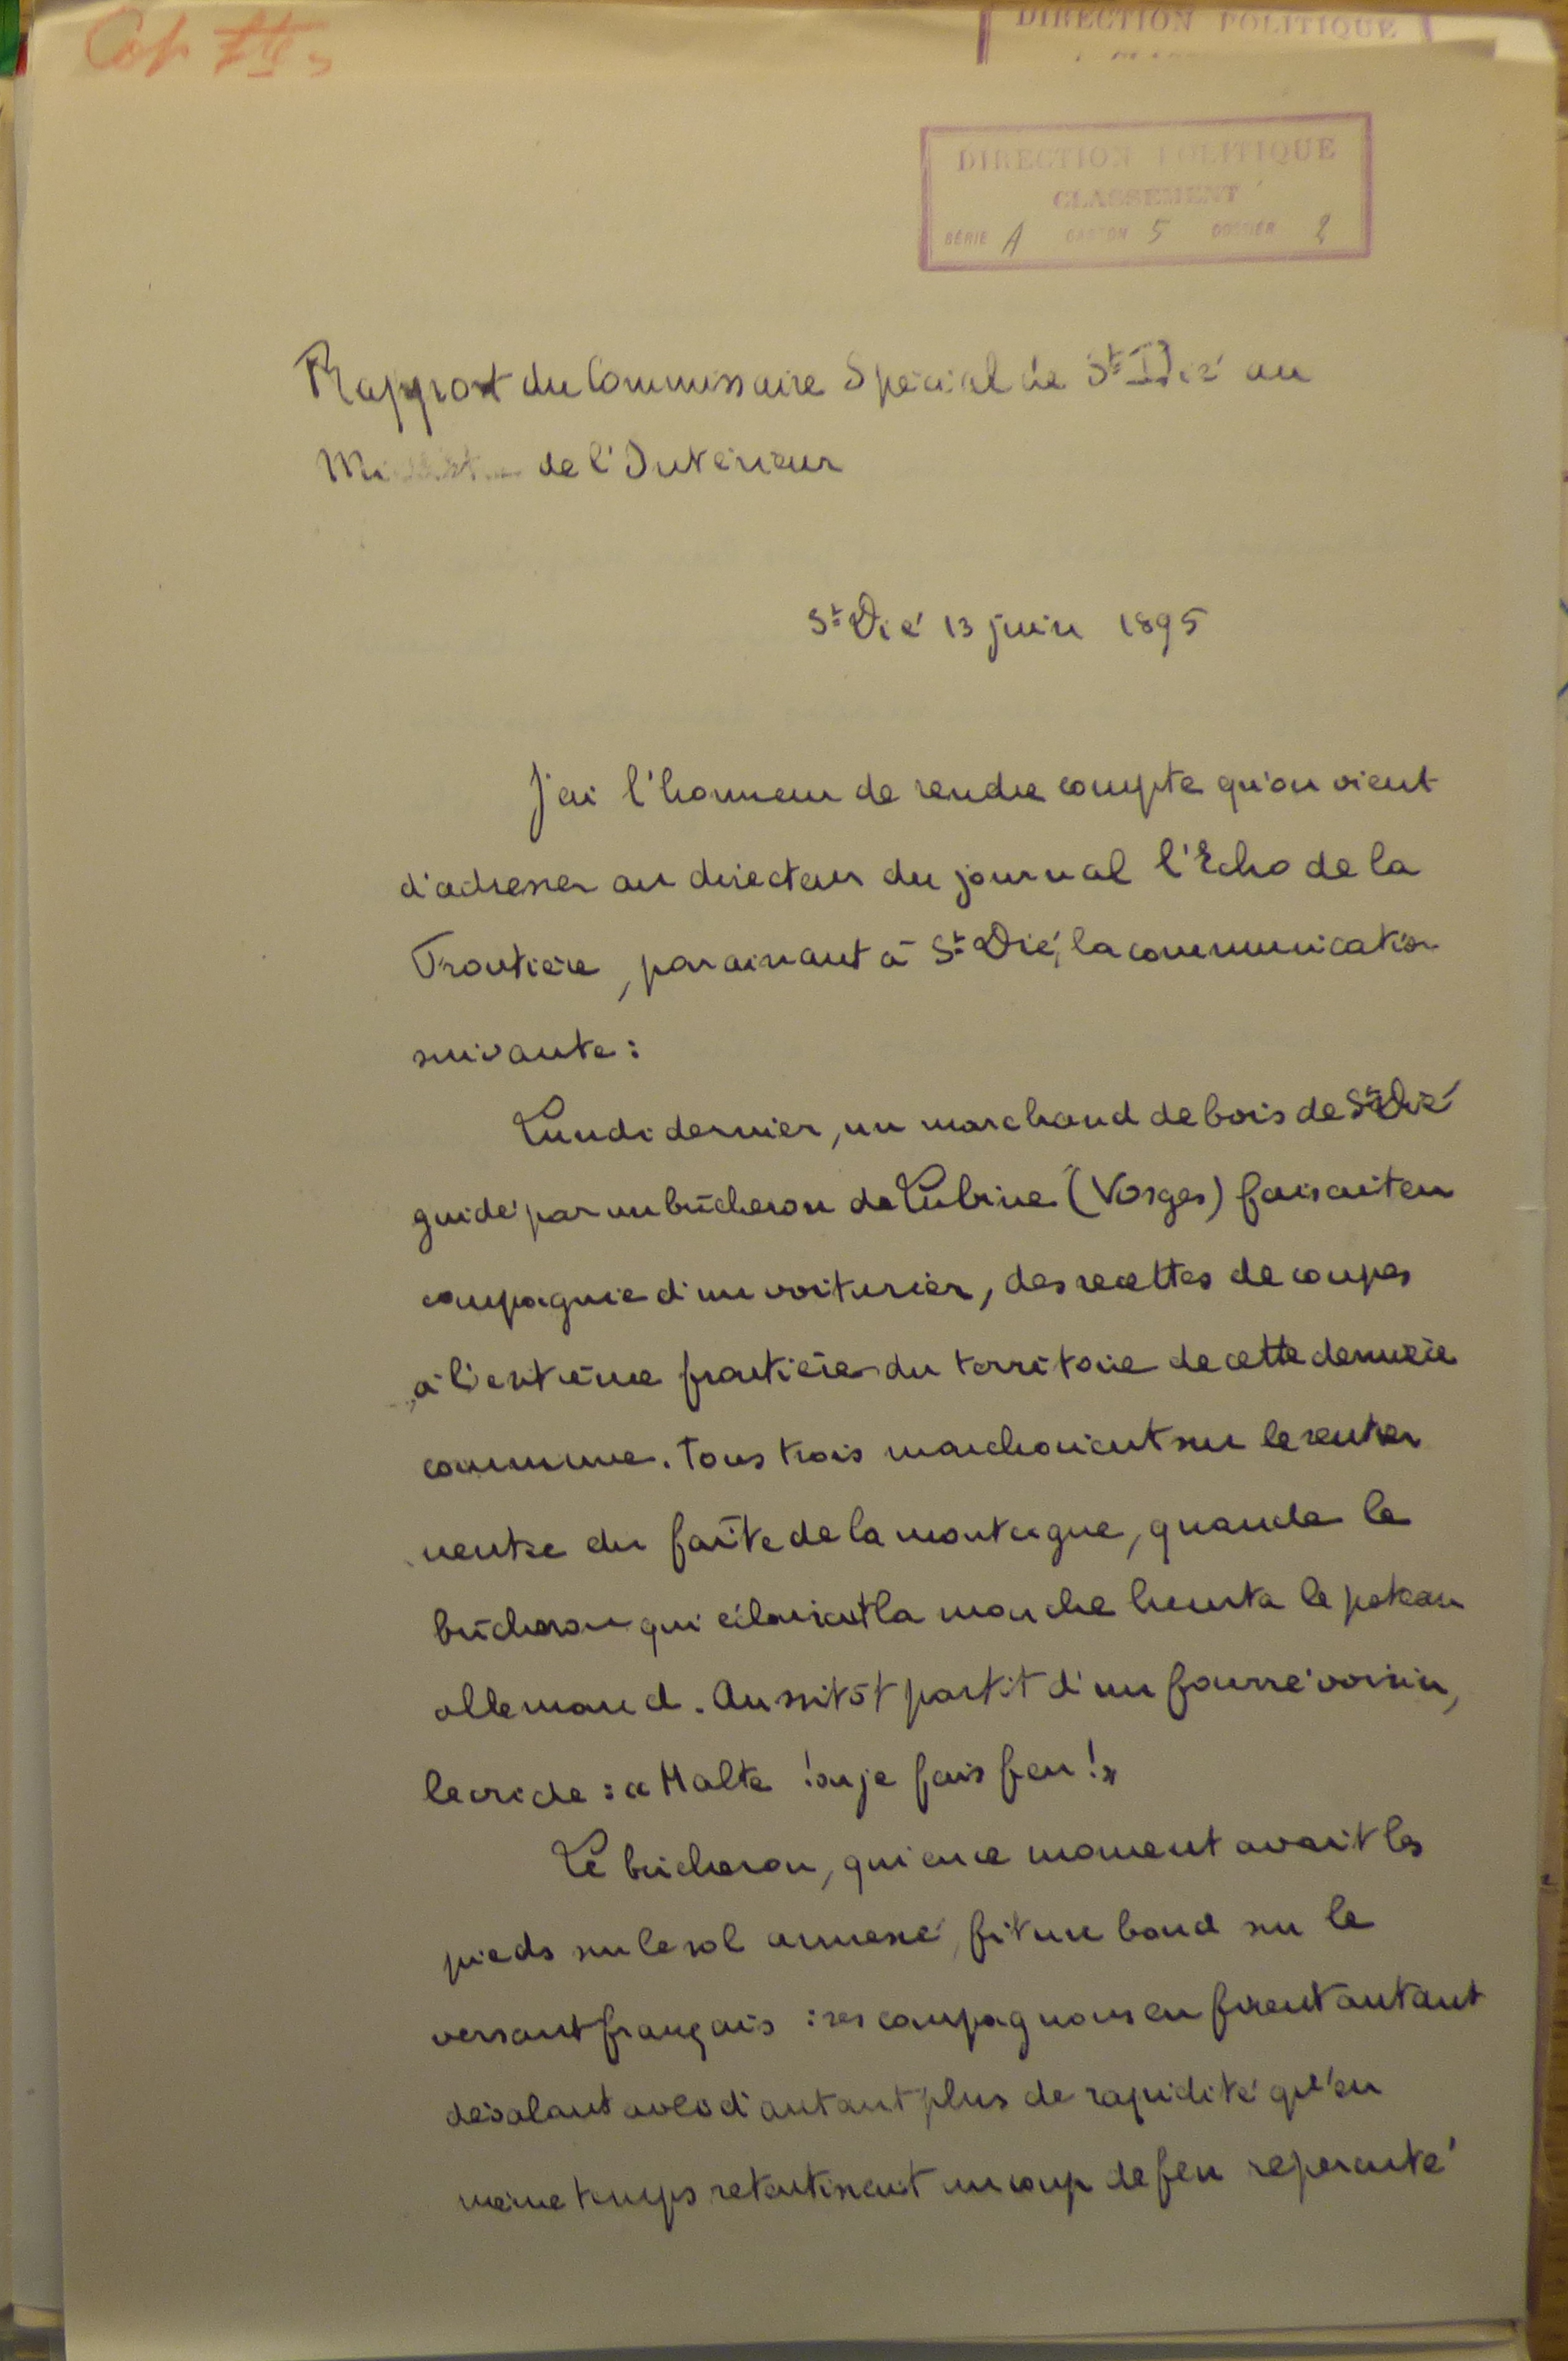 DIRECTION POLITIQUE
DIRECTION POLITIQUE
CLASSEMENT
SÉRIE A CARTON 5 DOSSIER 2
Rapport du Commissaire Spécial de St Dié au
Ministre de l'Intérieur
St Dié 13 juin 1895
J'ai l'honneur de rendre compte qu'on vient
d'adresser au directeur du journal l'Echo de la
Frontière, paraissant à St Dié, la communication
suivante :
Lundi dernier, un marchand de bois de St Dié
guidé par un bûcheron de Lubine (Vosges) faisait en
compagnie d'un voiturier, des recettes de coupes
à l'extrême frontière du territoire de cette dernière
commune. Tous trois marchaient sur le sentier
neutre du faîte de la montagne, quand le
bûcheron qui éclairait la marche heurta le poteau
allemand. Aussitôt partit d'un fourré voisin,
le cri de : « Halte ! ou je fais feu ! »
Le bûcheron, qui en ce moment avait les
pieds sur le sol annexé, fit un bond sur le
versant français : ses compagnons en firent autant
dévalant avec d'autant plus de rapidité qu'en
même temps retentissait un coup de feu répercuté